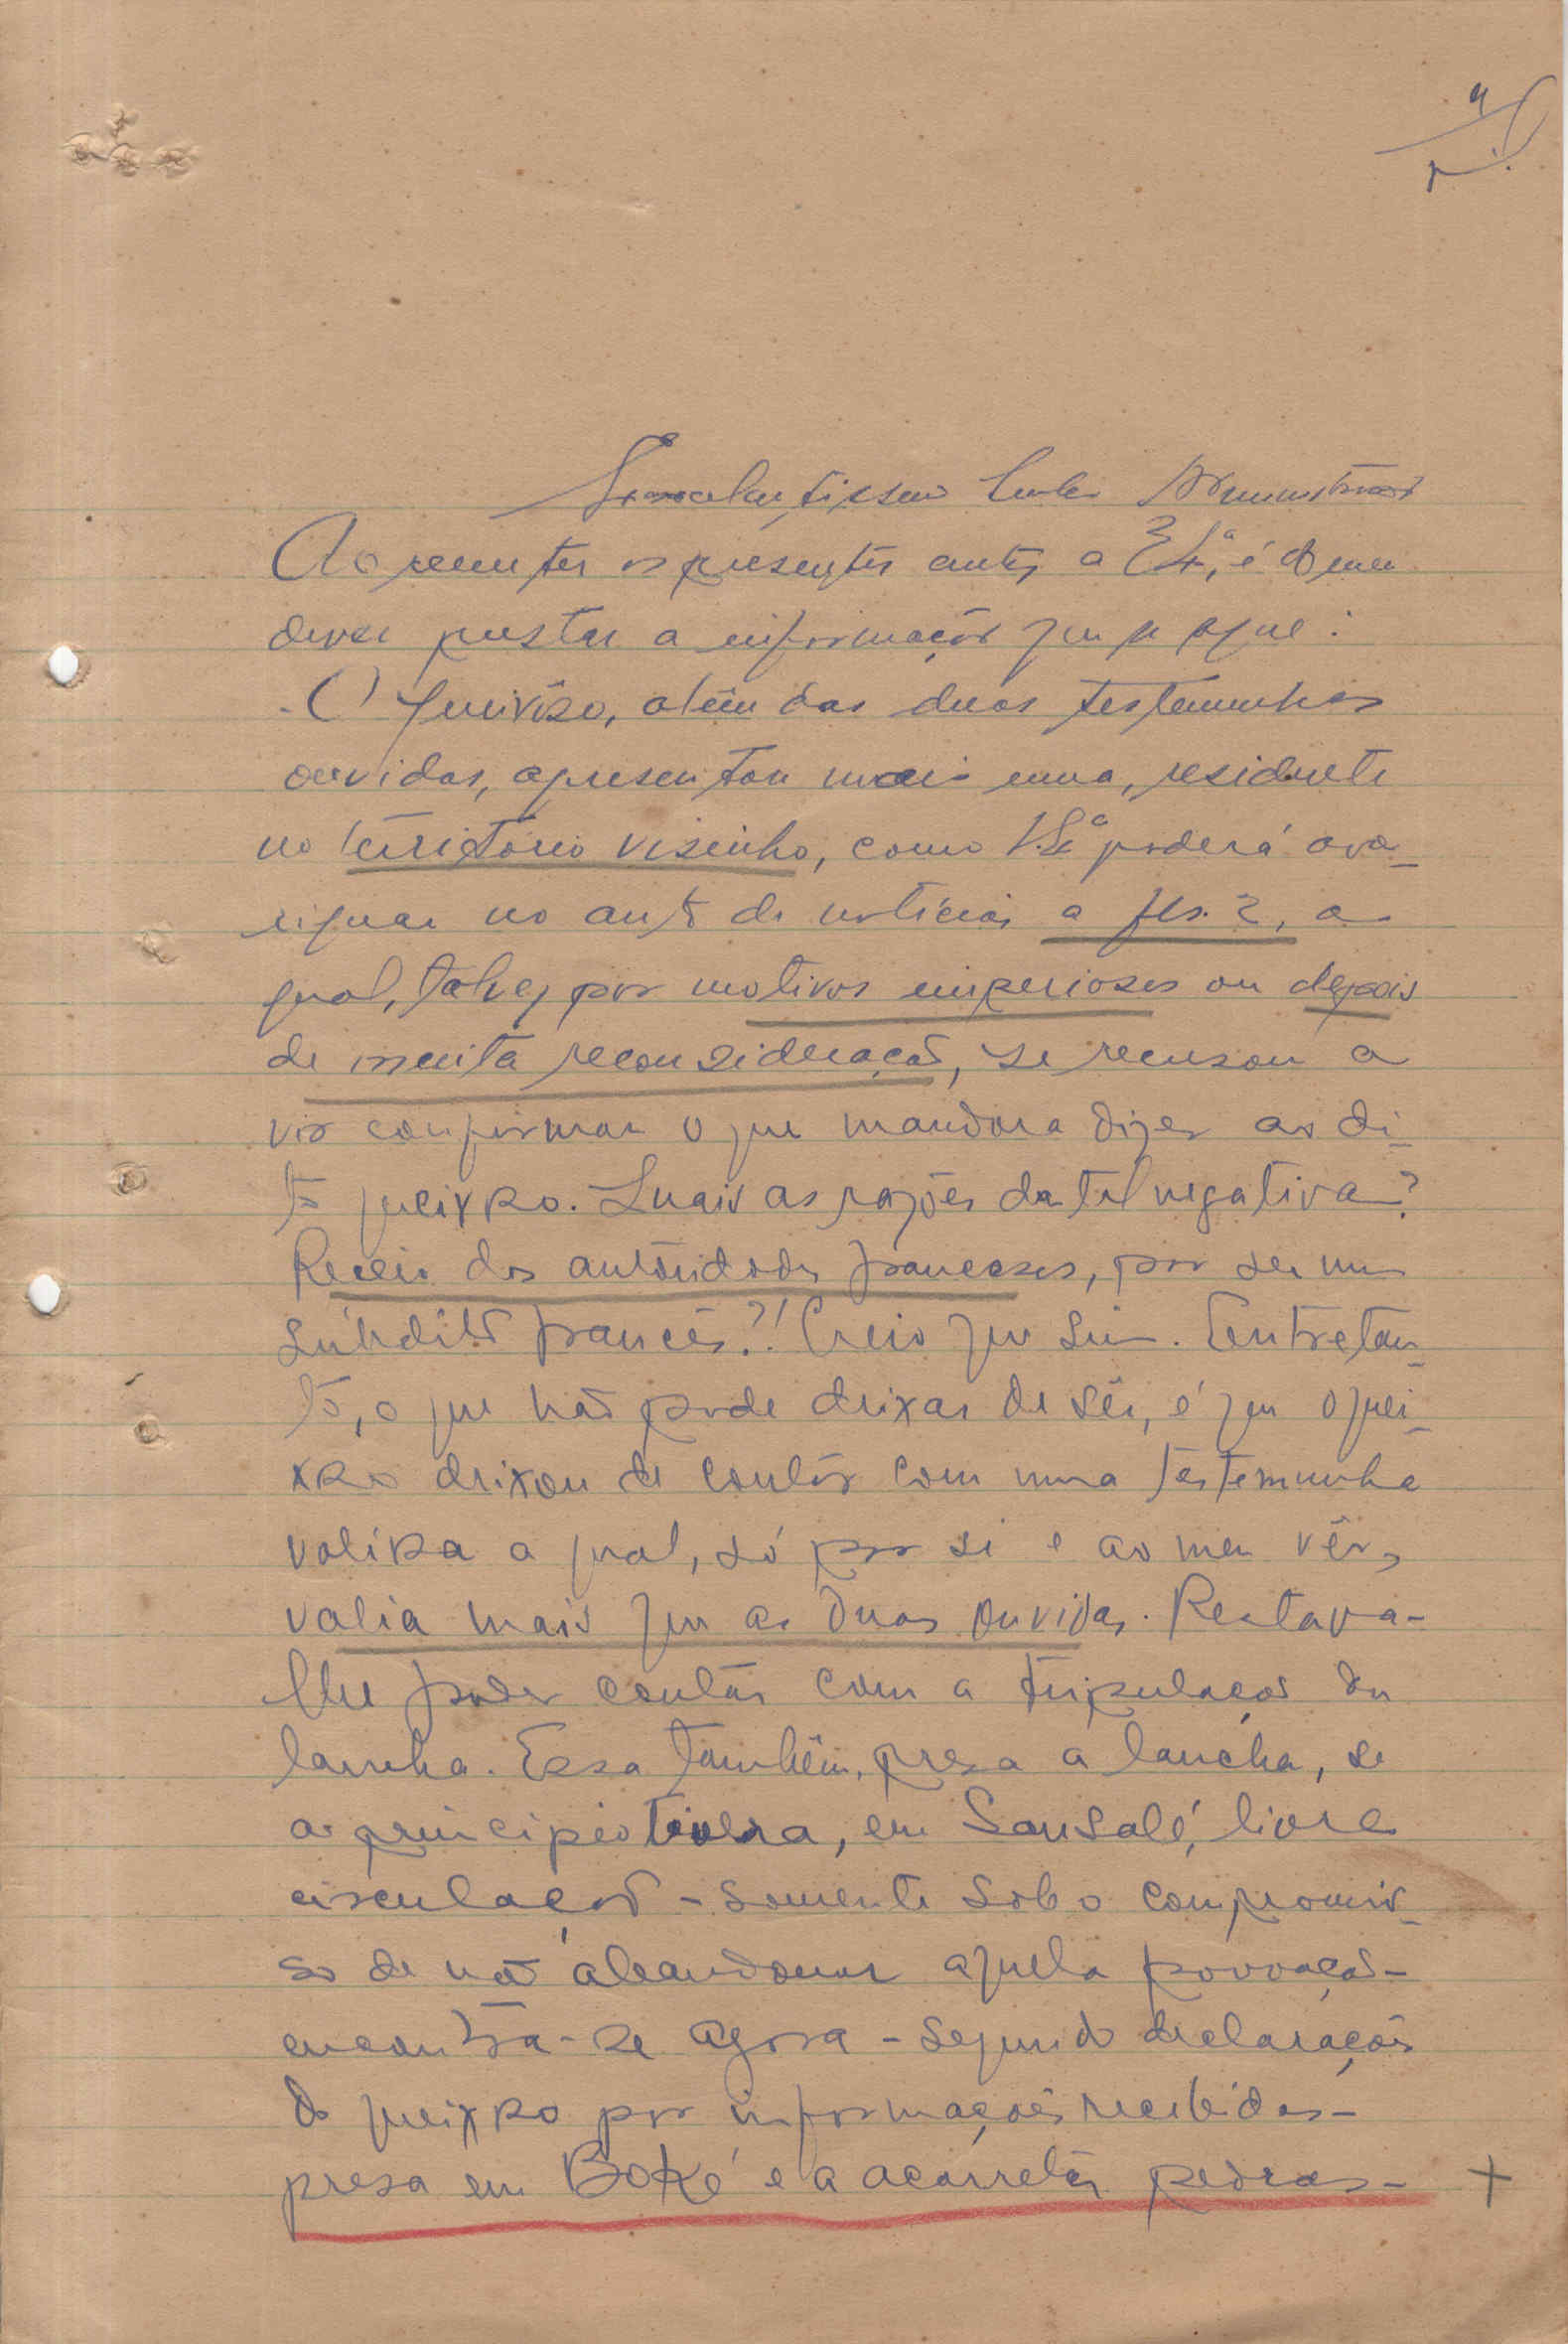 Excelentíssimo Senhor Administrador
Ao remeter os presentes autos a V. S.ª, é do meu
dever prestar a informação que se segue:
- O queixoso, além das duas testemunhas
ouvidas, apresentou mais uma, residente
no território visinho, como V. S.ª poderá ave-
riguar no auto de notícias a fls. 2, a
qual, talvez por motivos imperiosos ou depois
de muita reconsideração, se recusou a
vir confirmar o que mandara dizer ao di-
to queixoso. Quais as razões da tal negativa?
Receio das autoridades francesas, por ser um
súbdito francês?! Creio que sim. Entretan-
to, o que não pode deixar de sêr, é que o quei-
xoso deixou de contár com uma testemunha
valiosa a qual, só por si e ao meu vêr,
valia mais que as duas ouvidas. Restava-
lhe poder contár com a tripulação da
lancha. Essa também, presa a lancha, se
a principio tivera, em Sansalé, livre
circulação - somente sob o compromis-
so de não abandonar aquela povoação -
encontra-se agora - segundo declarações
do queixoso por informações recebidas -
presa em Boké e a acarretár pedras -